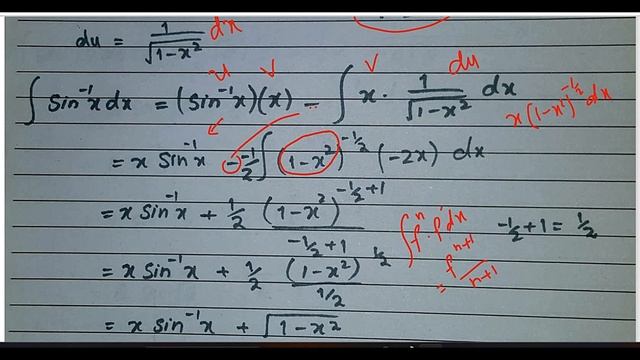 du = 1/√(1-x²) dx
u v v du
∫ sin⁻¹x dx = (sin⁻¹x)(x) - ∫ x · 1/√(1-x²) dx
x(1-x²)^(-1/2) dx
= x sin⁻¹x - -1/2 ∫ (1-x²)^(-1/2) (-2x) dx
= x sin⁻¹x + 1/2 (1-x²)^(-1/2+1) / (-1/2+1)
∫ fⁿ · f' dx
= f^(n+1) / (n+1)
-1/2 + 1 = 1/2
= x sin⁻¹x + 1/2 (1-x²)^(1/2) / (1/2)
= x sin⁻¹x + √(1-x²)